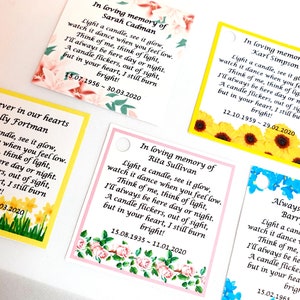 In loving memory of
Sarah Cadman
Light a candle, see it glow,
watch it dance when you feel low.
Think of me, think of light,
I'll always be here day or night.
A candle flickers, out of sight,
but in your heart, I still burn
bright!
1936 ~ 30.03.2020
In loving memory
Janet Simpson
Light a candle, see it glow,
watch it dance when you feel low.
Think of me, think of light,
I'll always be here day or night.
A candle flickers, out of sight,
but in your heart, I still burn
bright!
12.10.1939 ~ 29.02.2020
ever in our hearts
lly Fortman
a candle, see it glow,
it dance when you feel low.
of me, think of light,
ays be here day or night.
flickers, out of sight,
your heart, I still burn
bright!
03.2020
In loving memory of
Rita Sullivan
Light a candle, see it glow,
watch it dance when you feel low.
Think of me, think of light,
I'll always be here day or night.
A candle flickers, out of sight,
but in your heart, I still burn
bright!
15.08.1935 ~ 11.01.2020
Always
Bar
Light a can
watch it dance
Think of me
I'll always be
A candle flick
but in your
15.02.196